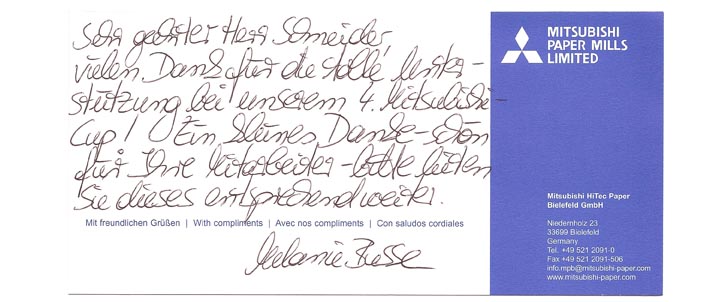 Sehr geehrter Herr Schneider,
vielen Dank für die tolle Unter-
stützung bei unserem 4. Mitsubishi-
Cup! Ein kleines Danke-schön
für Ihre Mitarbeiter - bitte leiten
Sie dieses entsprechend weiter.
Mit freundlichen Grüßen | With compliments | Avec nos compliments | Con saludos cordiales
Melanie Busse
MITSUBISHI
PAPER MILLS
LIMITED
Mitsubishi HiTec Paper
Bielefeld GmbH
Niedernholz 23
33699 Bielefeld
Germany
Tel. +49 521 2091-0
Fax +49 521 2091-506
info.mpb@mitsubishi-paper.com
www.mitsubishi-paper.com